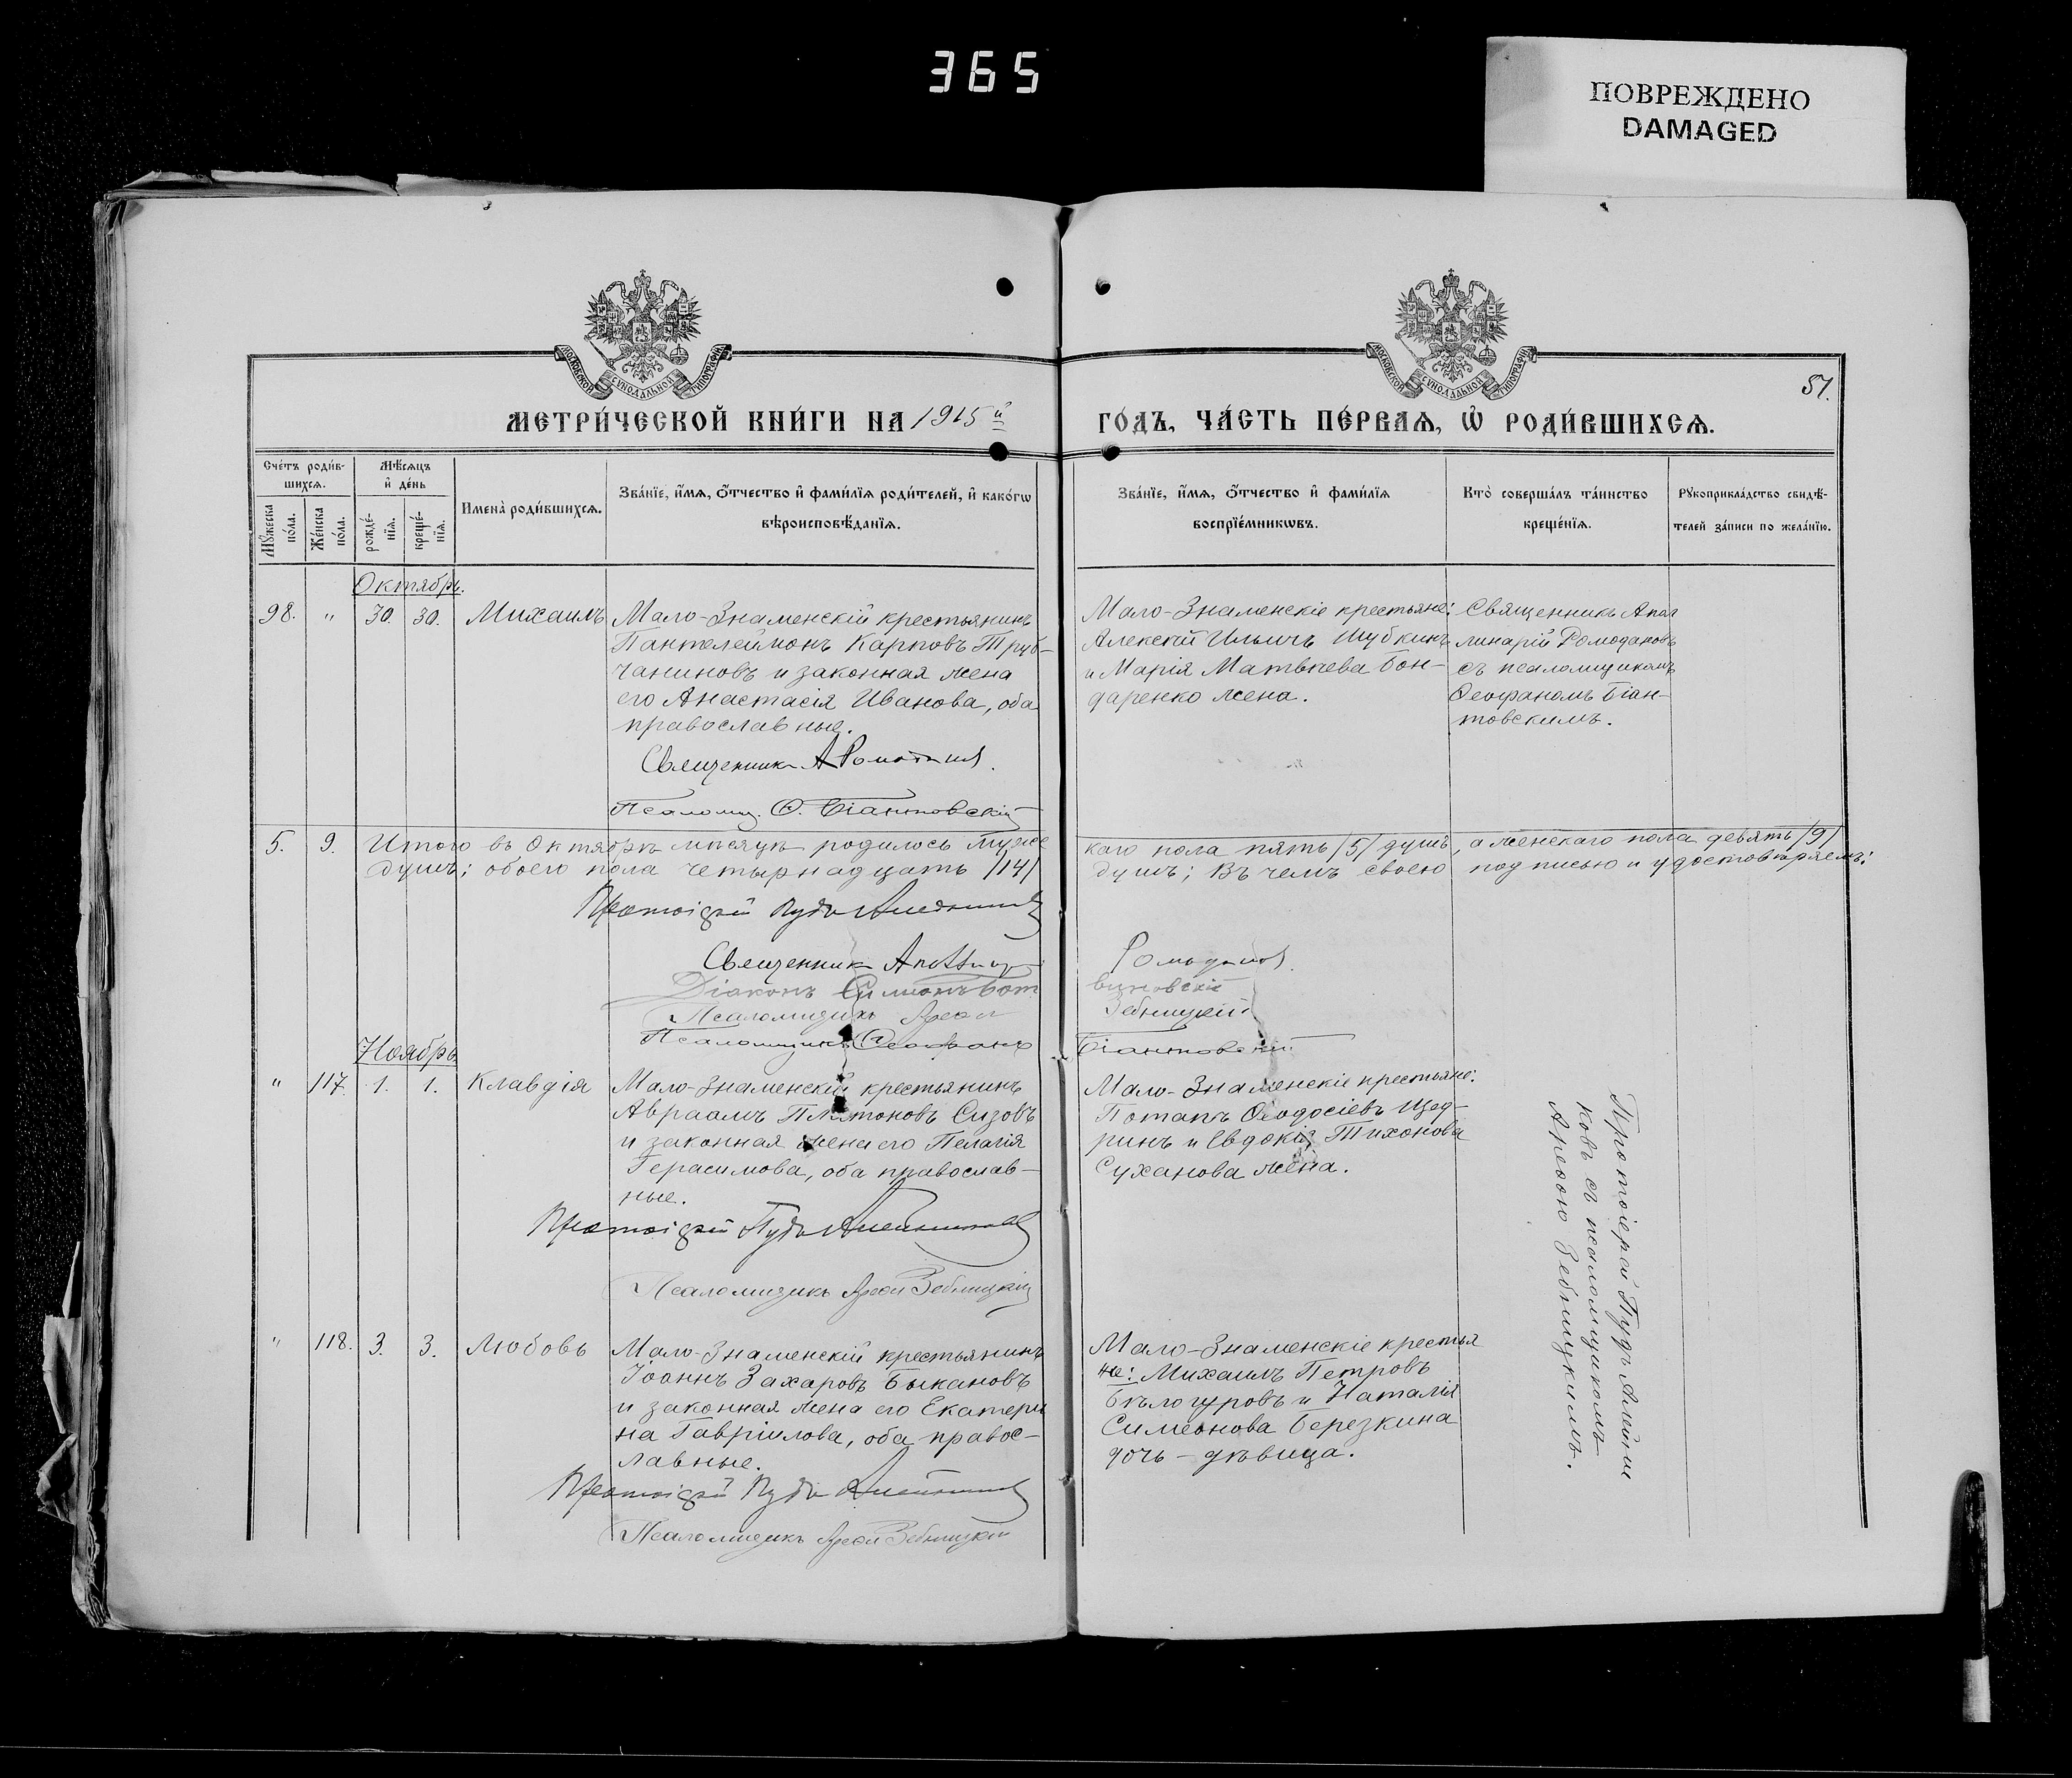 365
ПОВРЕЖДЕНО
DAMAGED
МОСКОВСКОЙ СѴНОДАЛЬНОЙ ТИПОГРАФІИ
МОСКОВСКОЙ СѴНОДАЛЬНОЙ ТИПОГРАФІИ
51.
МЕТРИ́ЧЕСКОЙ КНИ́ГИ НА 1915й
ГО́ДЪ, ЧА́СТЬ ПЕ́РВАѦ, Ѡ҆ РОДИ́ВШИХСѦ.
Сче́тъ роди́в-
шихсѧ.
Мꙋ́жеска по́ла.
Же́нска по́ла.
Мѣ́сѧцъ
и҆ де́нь
рожде́-
нїѧ.
креще́-
нїѧ.
Имена̀ роди́вшихсѧ.
Зва́нїе, и҆́мѧ, ѻ҆́тчество и҆ фами́лїѧ роди́телей, и҆ како́гѡ
вѣроисповѣ́данїѧ.
Зва́нїе, и҆́мѧ, ѻ҆́тчество и҆ фами́лїѧ
воспрїе́мникѡвъ.
Кто̀ соверша́лъ та́инство
креще́нїѧ.
Рꙋкоприкла́дство свидѣ́-
телей за́писи по жела́нїю.
Октябрь.
98. " 30. 30. Михаилъ
Мало-Знаменскій крестьянинъ
Пантелеймонъ Карповъ Труб-
чаниновъ и законная жена
его Анастасія Иванова, оба
православные.
Священникъ А Ромодановъ.
Псаломщ. Ѳ. Біантовскій
Мало-Знаменскіе крестьяне:
Алексѣй Ильичъ Шубкинъ
и Марія Матвѣева Бон-
даренко жена.
Священникъ Апол
линарій Ромодановъ
съ псаломщикомъ
Ѳеофаномъ Біан-
товскимъ.
5. 9. Итого въ Октябрѣ мѣсяцѣ родилось мужес
каго пола пять /5/ душъ, а женскаго пола девять /9/
душъ; обоего пола четырнадцать /14/
душъ; Въ чемъ своею подписью и удостовѣряемъ:
Протоіерей Пудъ Алейниковъ
Священникъ Аполлинар
Ромодановъ.
Діаконъ Симеонъ Бот
виновскій
Псаломщикъ Ареѳа
Зебницкій
Псаломщикъ Ѳеофанъ
Біантовскій
Ноябрь
" 117. 1. 1. Клавдія
Мало-Знаменскій крестьянинъ
Авраамъ Платоновъ Сизовъ
и законная жена его Пелагія
Герасимова, оба православ-
ные.
Протоіерей Пудъ Алейниковъ
Псаломщикъ Ареѳа Зебницкій
Мало-Знаменскіе крестьяне:
Потапъ Ѳеодосіевъ Щед-
ринъ и Евдокія Тихонова
Суханова жена.
Протоіерей Пудъ Алейни
ковъ съ псаломщикомъ
Ареѳою Зебницкимъ.
" 118. 3. 3. Любовь
Мало-Знаменскій крестьянинъ
Іоаннъ Захаровъ Быкановъ
и законная жена его Екатери
на Гавріилова, оба правос-
лавные.
Протоіерей Пудъ Алейниковъ
Псаломщикъ Ареѳа Зебницкій
Мало-Знаменскіе крестья
не: Михаилъ Петровъ
Бѣлогуровъ и Наталія
Симеонова Березкина
дочь - дѣвица.